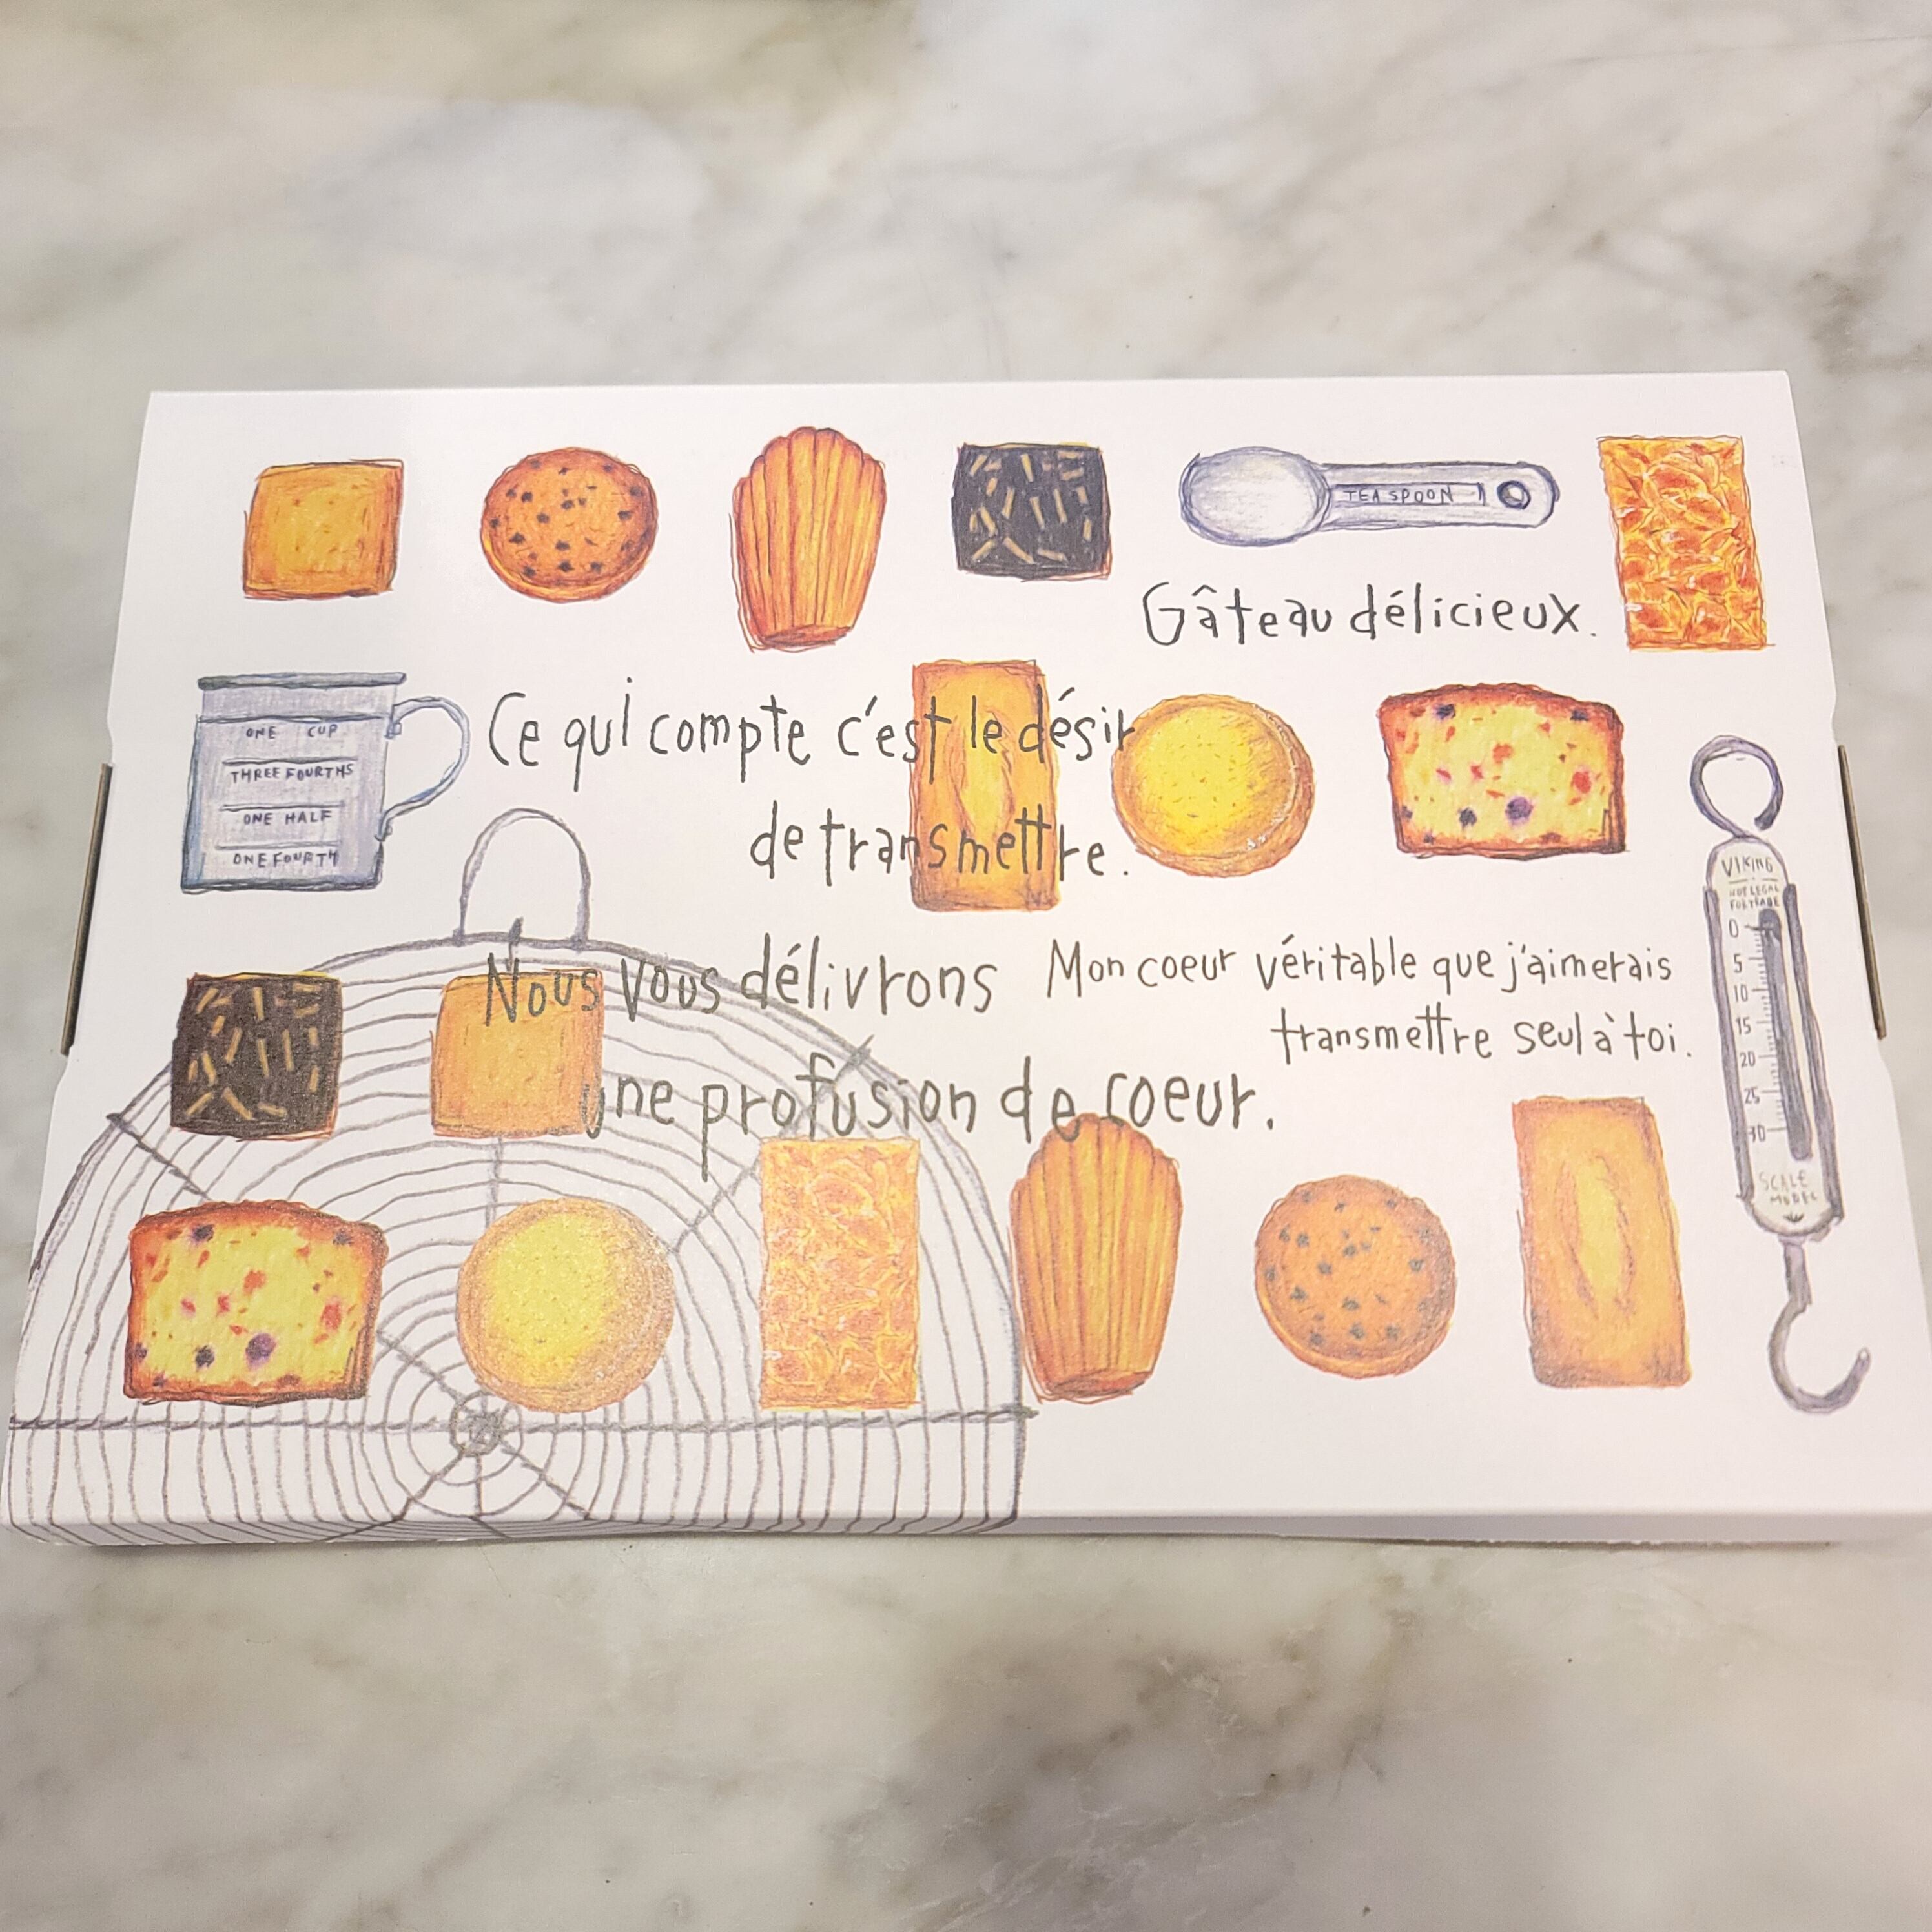 TEA SPOON 1
Gâteau délicieux.
ONE CUP
THREE FOURTHS
ONE HALF
ONE FOURTH
Ce qui compte c'est le désir
de transmettre.
Nous vous délivrons
une profusion de coeur.
Mon coeur véritable que j'aimerais
transmettre seul à toi.
VIKING
NOT LEGAL
FOR TRADE
0
5
10
15
20
25
30
SCALE
MODEL